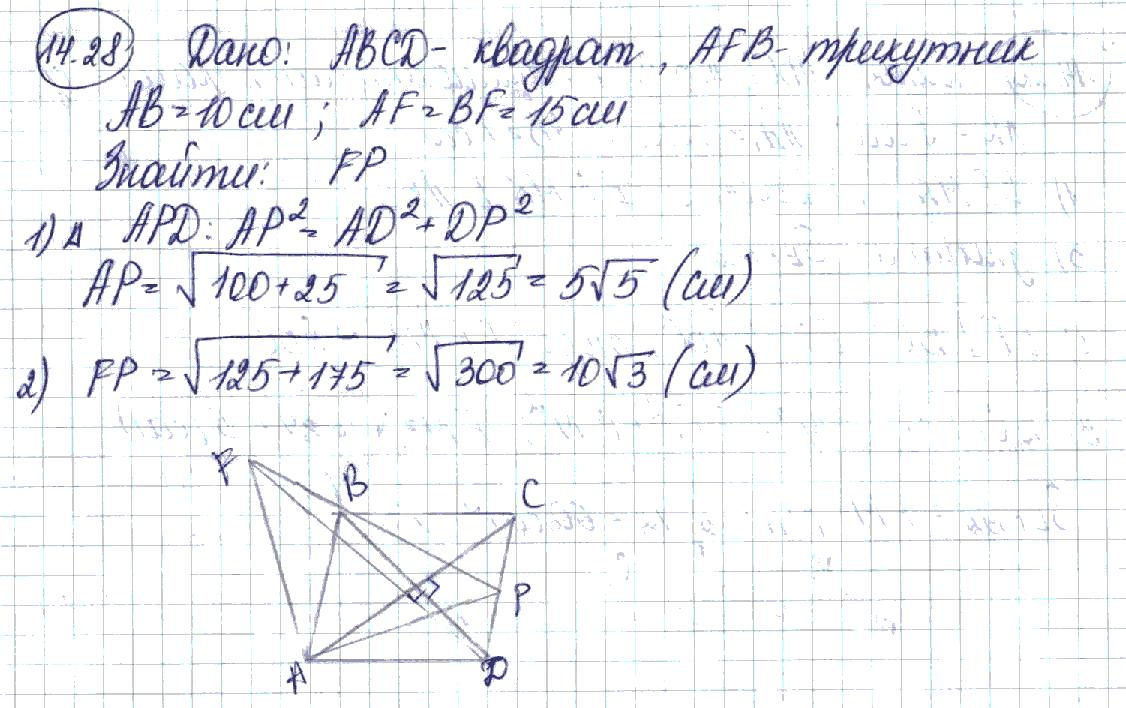 14.28 Дано: ABCD - квадрат, AFB - трикутник
AB = 10 см; AF = BF = 15 см
Знайти: FP
1) Δ APD: AP² = AD² + DP²
AP = √100+25 = √125 = 5√5 (см)
2) FP = √125+175 = √300 = 10√3 (см)
F
B
C
P
A
D